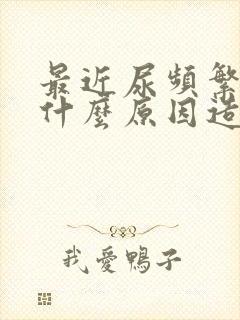 最近尿頻繁
什麼原因造
我愛鴨子